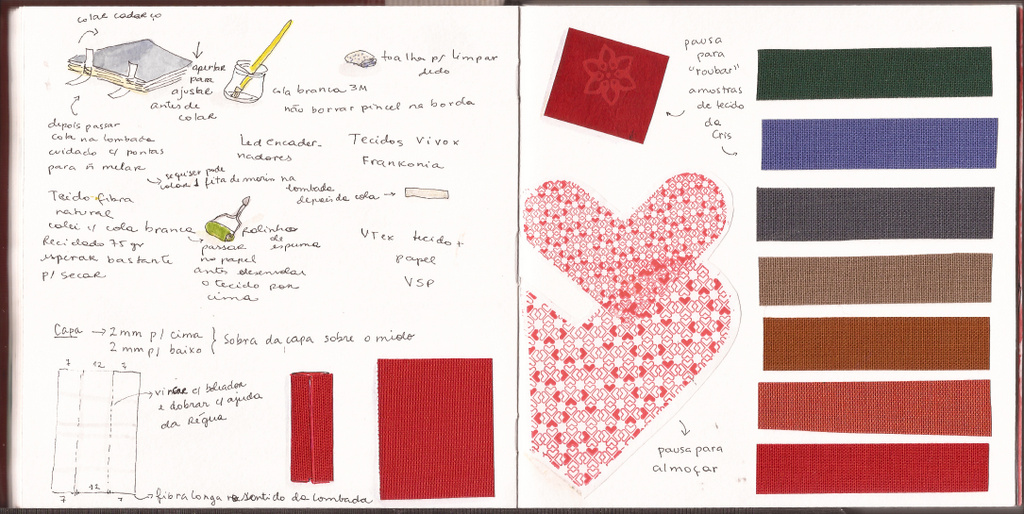 colar cadarço
apertar
para
ajustar
antes de
colar
toalha p/ limpar
dedo
cola branca 3M
não borrar pincel na borda
depois passar
cola na lombada
cuidado c/ pontas
para ñ melar
se quiser pode
colar 1 fita de morim na
lombada
depois da cola →
Led encader-
nadores
Tecidos Vivox
Frankonia
Tecido fibra
natural
colei c/ cola branca
Reciclado 75 gr
esperar bastante
p/ secar
Rolinho
de
espuma
passar
no papel
antes desenrolar
o tecido por
cima
VTex tecido +
papel
VSP
Capa → 2 mm p/ cima
2 mm p/ baixo
sobra da capa sobre o miolo
7 12 7
vincar c/ boleador
e dobrar c/ ajuda
da Régua
7 12 7
fibra longa no sentido da lombada
pausa
para
"roubar"
amostras
de tecido
da
Cris
pausa para
almoçar